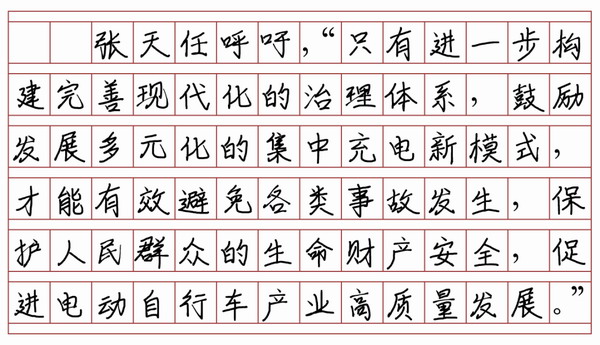 张天任呼吁，“只有进一步构
建完善现代化的治理体系，鼓励
发展多元化的集中充电新模式，
才能有效避免各类事故发生，保
护人民群众的生命财产安全，促
进电动自行车产业高质量发展。”